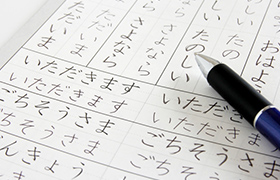 おはよ
たの
しい
たのしい
さよなら
さよなら
ただいま
ただいま
いただきます
いただきます
いただきます
いただきます
ごちそうさま
ごちそうさま
ごちそうさ
ごちそうさま
んきょう